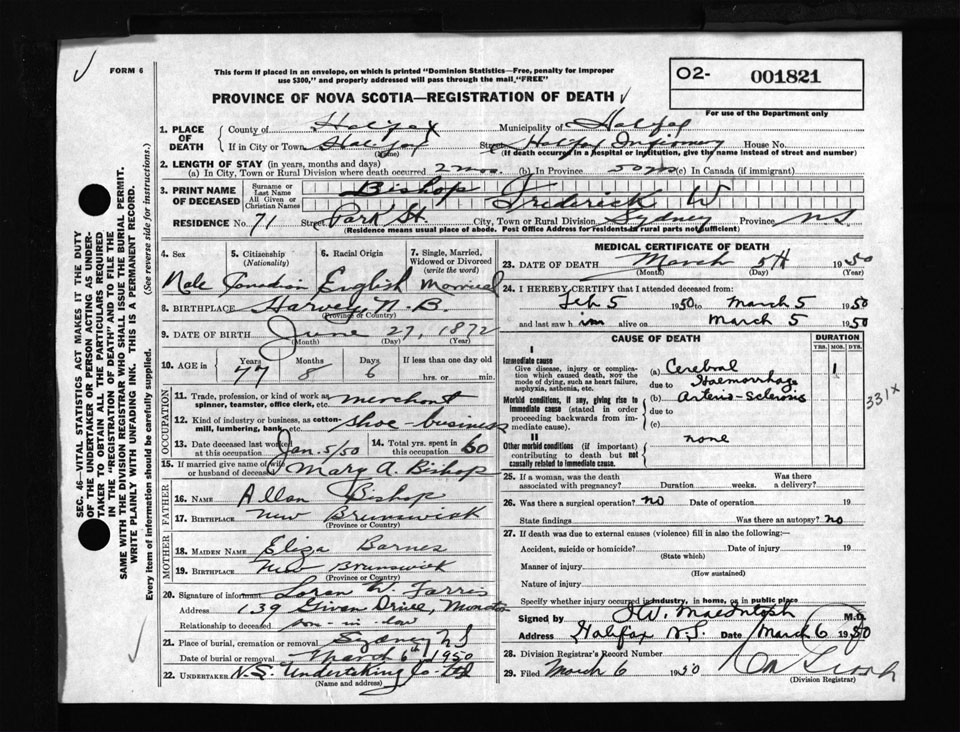 FORM 6
This form if placed in an envelope, on which is printed "Dominion Statistics—Free, penalty for improper
use $300," and properly addressed will pass through the mail "FREE"
O2- 001821
PROVINCE OF NOVA SCOTIA—REGISTRATION OF DEATH
For use of the Department only
1. PLACE OF DEATH
County of Halifax Municipality of Halifax
If in City or Town Halifax Street Halifax Infirmary House No.
(Name) (If death occurred in a hospital or institution, give the name instead of street and number)
2. LENGTH OF STAY (in years, months and days)
(a) In City, Town or Rural Division where death occurred 2 mos. (b) In Province 50 yrs (c) In Canada (if immigrant)
3. PRINT NAME OF DECEASED
Surname or Last Name Bishop
All Given or Christian Names Frederick W
RESIDENCE No. 71 Street Park St. City, Town or Rural Division Sydney Province N S
(Residence means usual place of abode. Post Office Address for residents of rural parts not sufficient)
4. Sex 5. Citizenship (Nationality) 6. Racial Origin 7. Single, Married, Widowed or Divorced (write the word)
Male Canadian English Married
8. BIRTHPLACE Harvey N. B.
(Province or Country)
9. DATE OF BIRTH June 27, 1872
(Month) (Day) (Year)
10. AGE in Years Months Days If less than one day old
77 8 6 hrs. or min.
OCCUPATION
11. Trade, profession, or kind of work as spinner, teamster, office clerk, etc. merchant
12. Kind of industry or business, as cotton-mill, lumbering, bank, etc. shoe-business
13. Date deceased last worked at this occupation Jan. 5/50 14. Total yrs. spent in this occupation 60
15. If married give name of wife or husband of deceased Mary A. Bishop
FATHER
16. NAME Allan Bishop
17. BIRTHPLACE New Brunswick
(Province or Country)
MOTHER
18. MAIDEN NAME Eliza Barnes
19. BIRTHPLACE New Brunswick
(Province or Country)
20. Signature of informant Loren W. Farris
Address 139 Givan Drive, Moncton
Relationship to deceased son-in-law
21. Place of burial, cremation or removal Sydney N S
Date of burial or removal March 6th 1950
22. UNDERTAKER N.S. Undertaking Co. Ltd
(Name and address)
MEDICAL CERTIFICATE OF DEATH
23. DATE OF DEATH March 5th 1950
(Month) (Day) (Year)
24. I HEREBY CERTIFY that I attended deceased from:
Feb 5 1950 to March 5 1950
and last saw him alive on March 5 1950
CAUSE OF DEATH
DURATION
YRS. MOS. DYS.
I
Immediate cause
Give disease, injury or complication which caused death, NOT the mode of dying, such as heart failure, asphyxia, asthenia, etc.
(a) Cerebral 1
due to Haemorrhage
Morbid conditions, if any, giving rise to immediate cause (stated in order proceeding backwards from immediate cause).
(b) Arterio-Sclerosis
due to
(c)
331x
II
Other morbid conditions (if important) contributing to death but not causally related to immediate cause.
none
25. If a woman, was the death associated with pregnancy? Duration weeks. Was there a delivery?
26. Was there a surgical operation? no Date of operation 19
State findings Was there an autopsy? no
27. If death was due to external causes (violence) fill in also the following:—
Accident, suicide or homicide? Date of injury 19
(State which)
Manner of injury
(How sustained)
Nature of injury
Specify whether injury occurred in industry, in home, or in public place
Signed by MacIntosh M.D.
Address Halifax N.S. Date March 6 1950
28. Division Registrar's Record Number
29. Filed March 6 1950
(Division Registrar)
SEC. 46—VITAL STATISTICS ACT MAKES IT THE DUTY
OF THE UNDERTAKER OR PERSON ACTING AS UNDER-
TAKER TO OBTAIN ALL THE PARTICULARS REQUIRED
IN THE "REGISTRATION OF DEATH" AND TO FILE THE
SAME WITH THE DIVISION REGISTRAR WHO SHALL ISSUE THE BURIAL PERMIT.
WRITE PLAINLY WITH UNFADING INK. THIS IS A PERMANENT RECORD.
Every item of information should be carefully supplied. (See reverse side for instructions.)